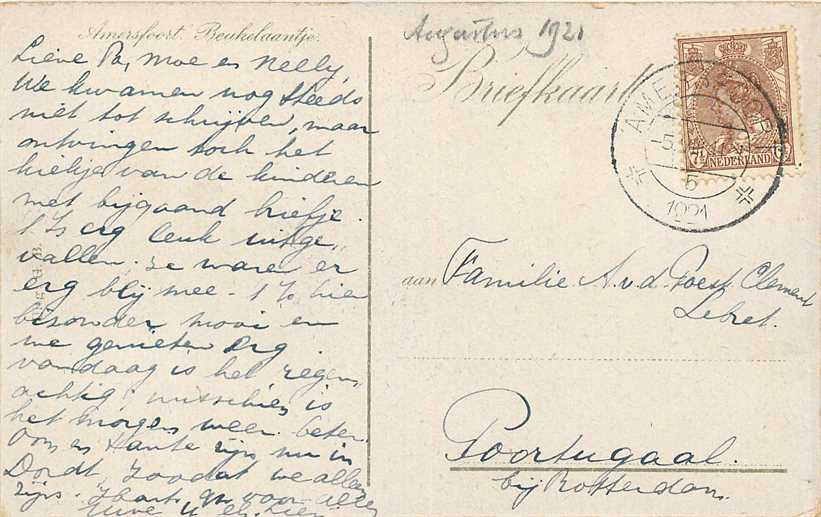 Amersfoort. Beukelaantje.
Lieve Pa, Moe en Nelly
We kwamen nog steeds
niet tot schrijven, maar
ontvingen toch het
kieltje van de kinderen
met bijgaand briefje.
't Is erg leuk uitge,,
vallen. ze waren er
erg blij mee. 't Is hier
bizonder mooi en
we genieten erg
vandaag is het regen,,
achtig: misschien is
het morgen weer beter.
Oom en Tante zijn nu in
Dordt, zoodat we alleen
zijn. Hart. gr. voor allen
Augustus 1921
Briefkaart
AMERSFOORT
1921
7½
NEDERLAND
aan Familie A. v. d. Poest Clement
Lebret.
Poortugaal.
bij Rotterdam.